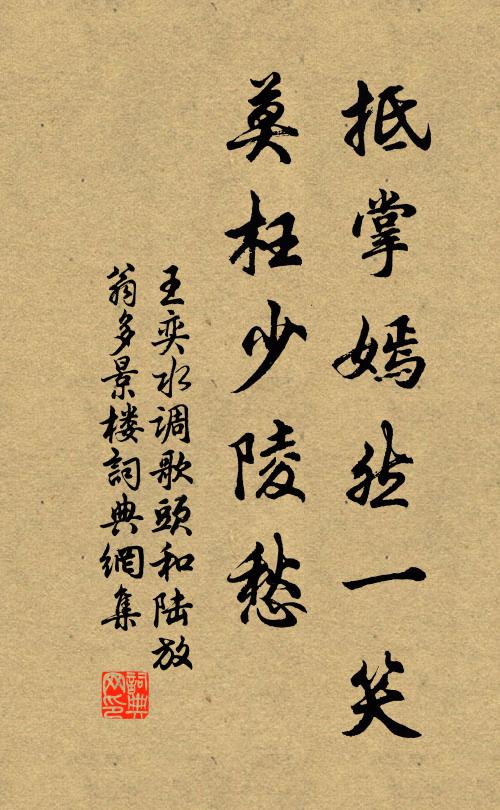 抵掌嫣然一笑
莫枉少陵愁
王奕水调歌頭和陆放
翁多景楼詞典網集
詞典网印